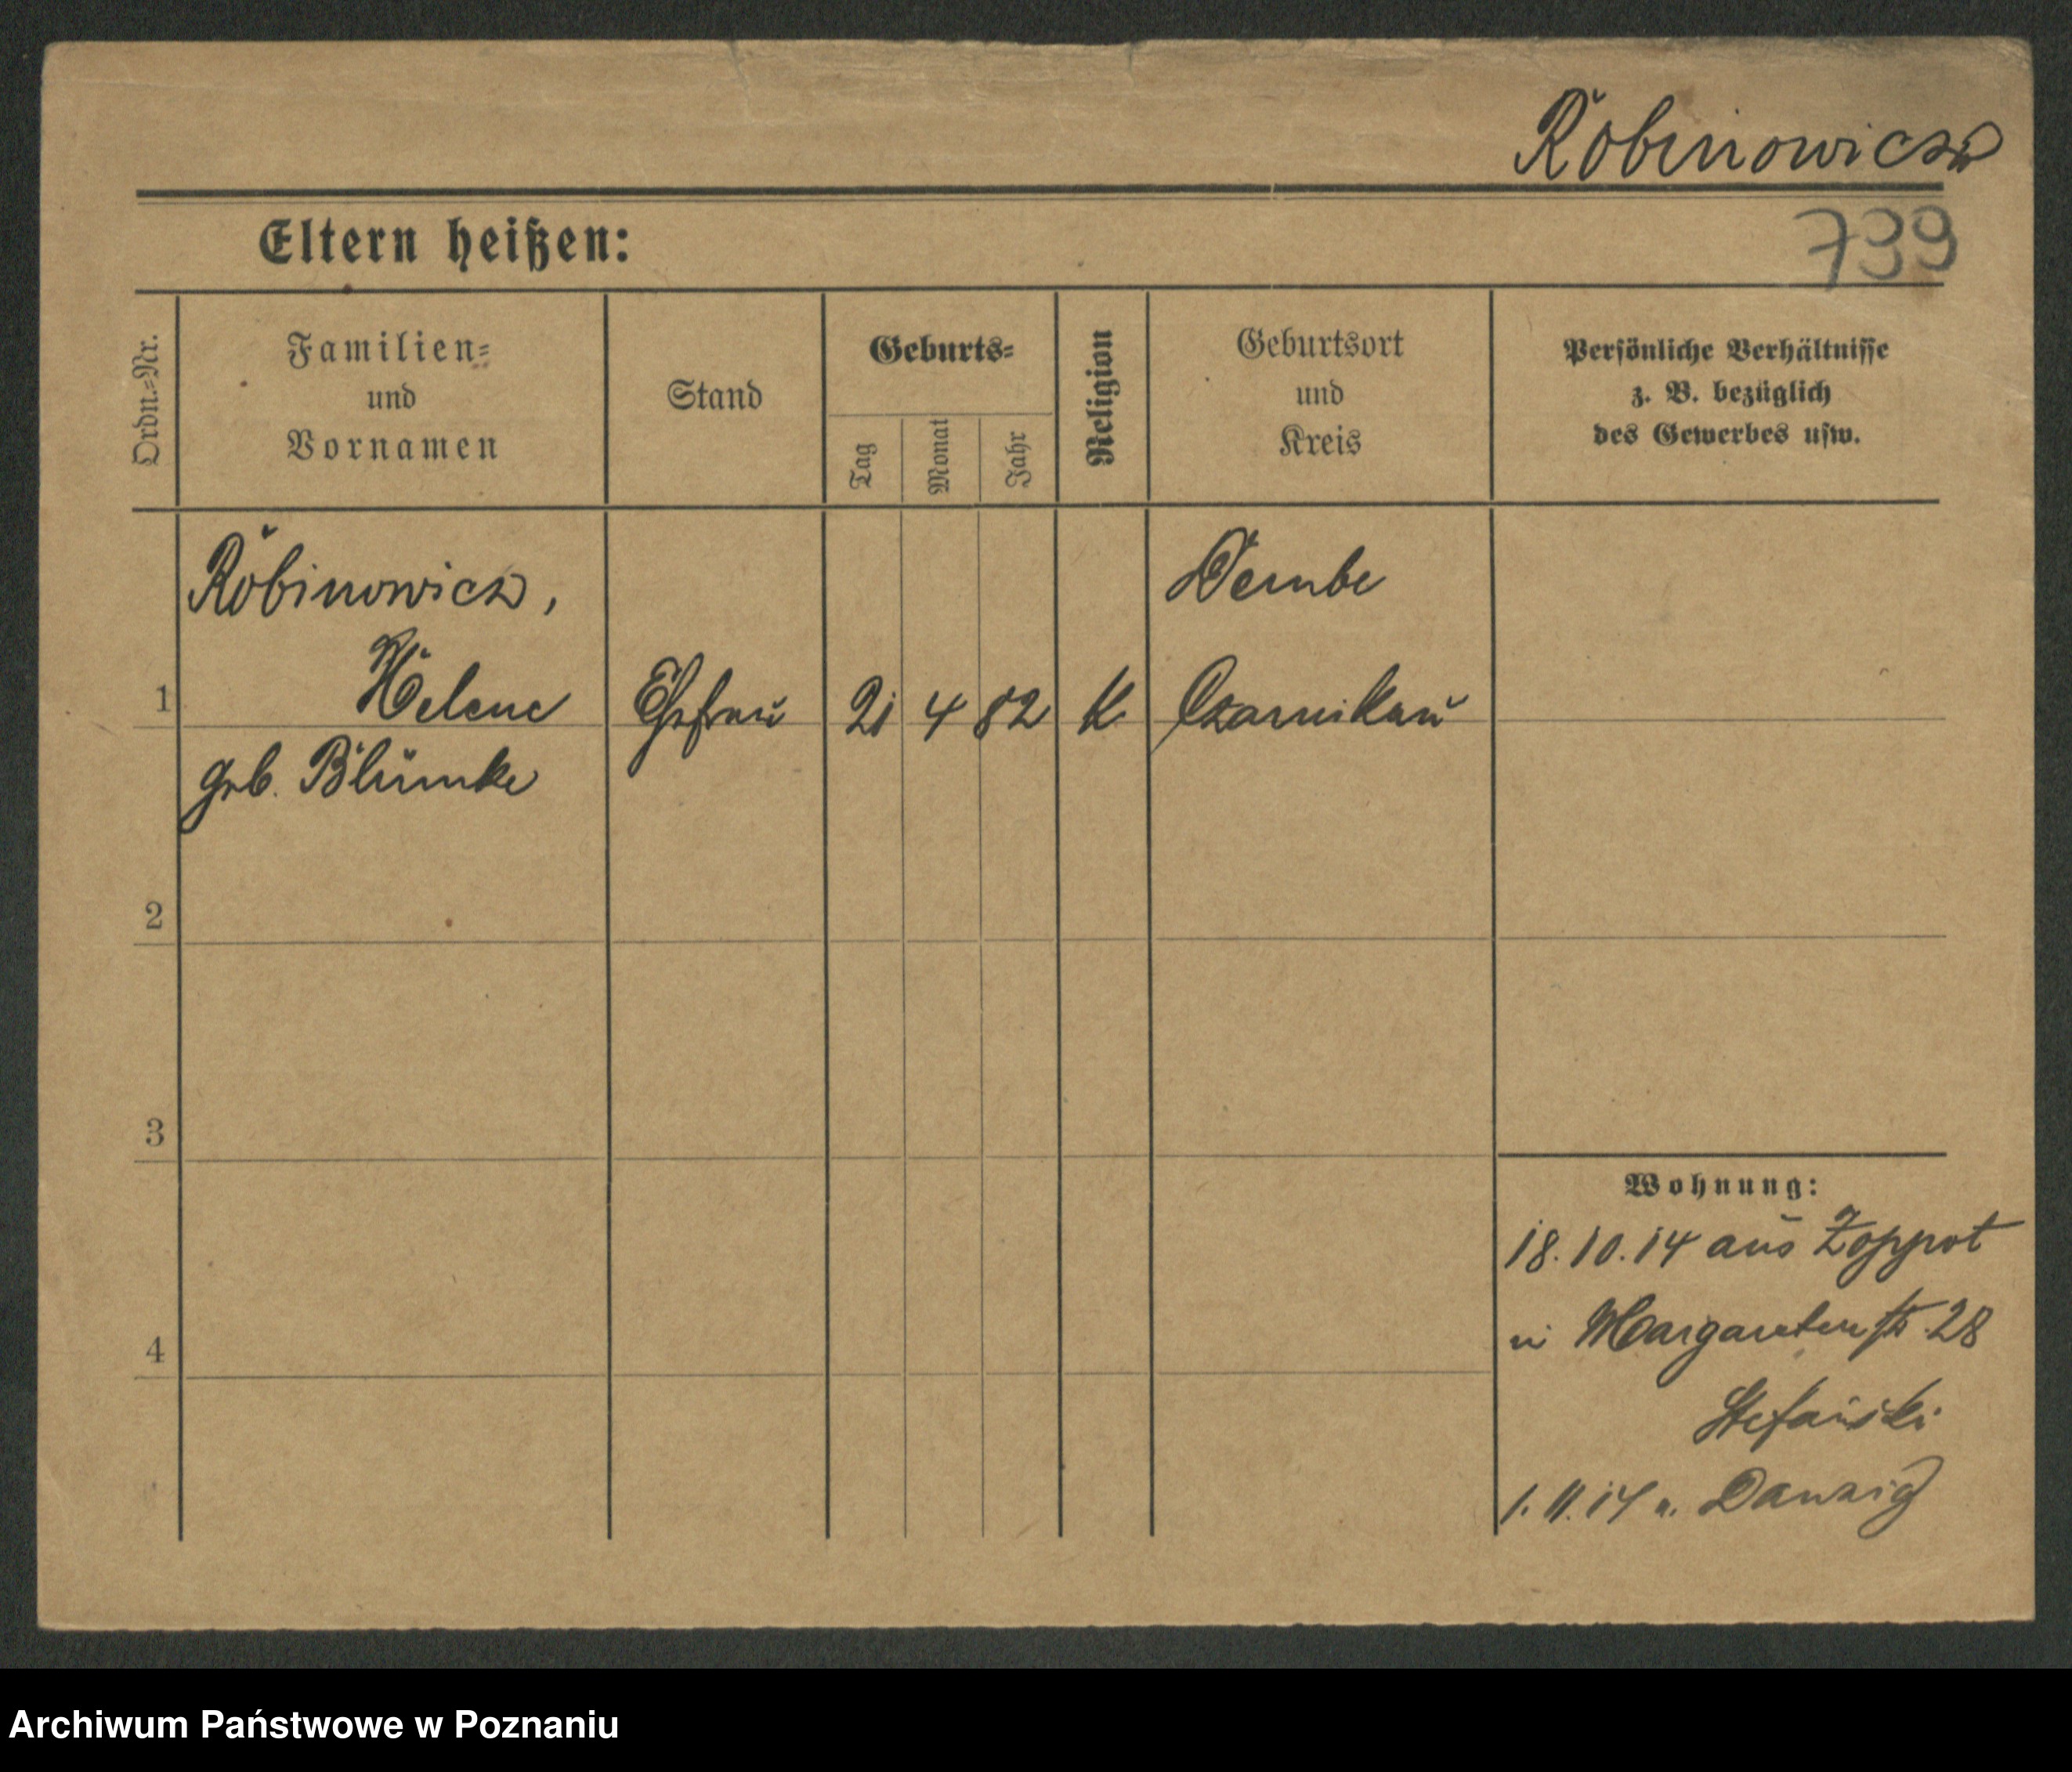 Robinowicz
Eltern heißen:
739
Ordn.-Nr.
Familien-
und
Vornamen
Stand
Geburts-
Tag
Monat
Jahr
Religion
Geburtsort
und
Kreis
Persönliche Verhältnisse
z. B. bezüglich
des Gewerbes usw.
Robinowicz,
Dembe
1 Helene Ehefrau 21 4 82 K. Czarnikau
geb. Blümke
2
3
Wohnung:
18.10.14 aus Zoppot
n Margaretenstr. 28
4
Stefański
1.11.14 n. Danzig
Archiwum Państwowe w Poznaniu